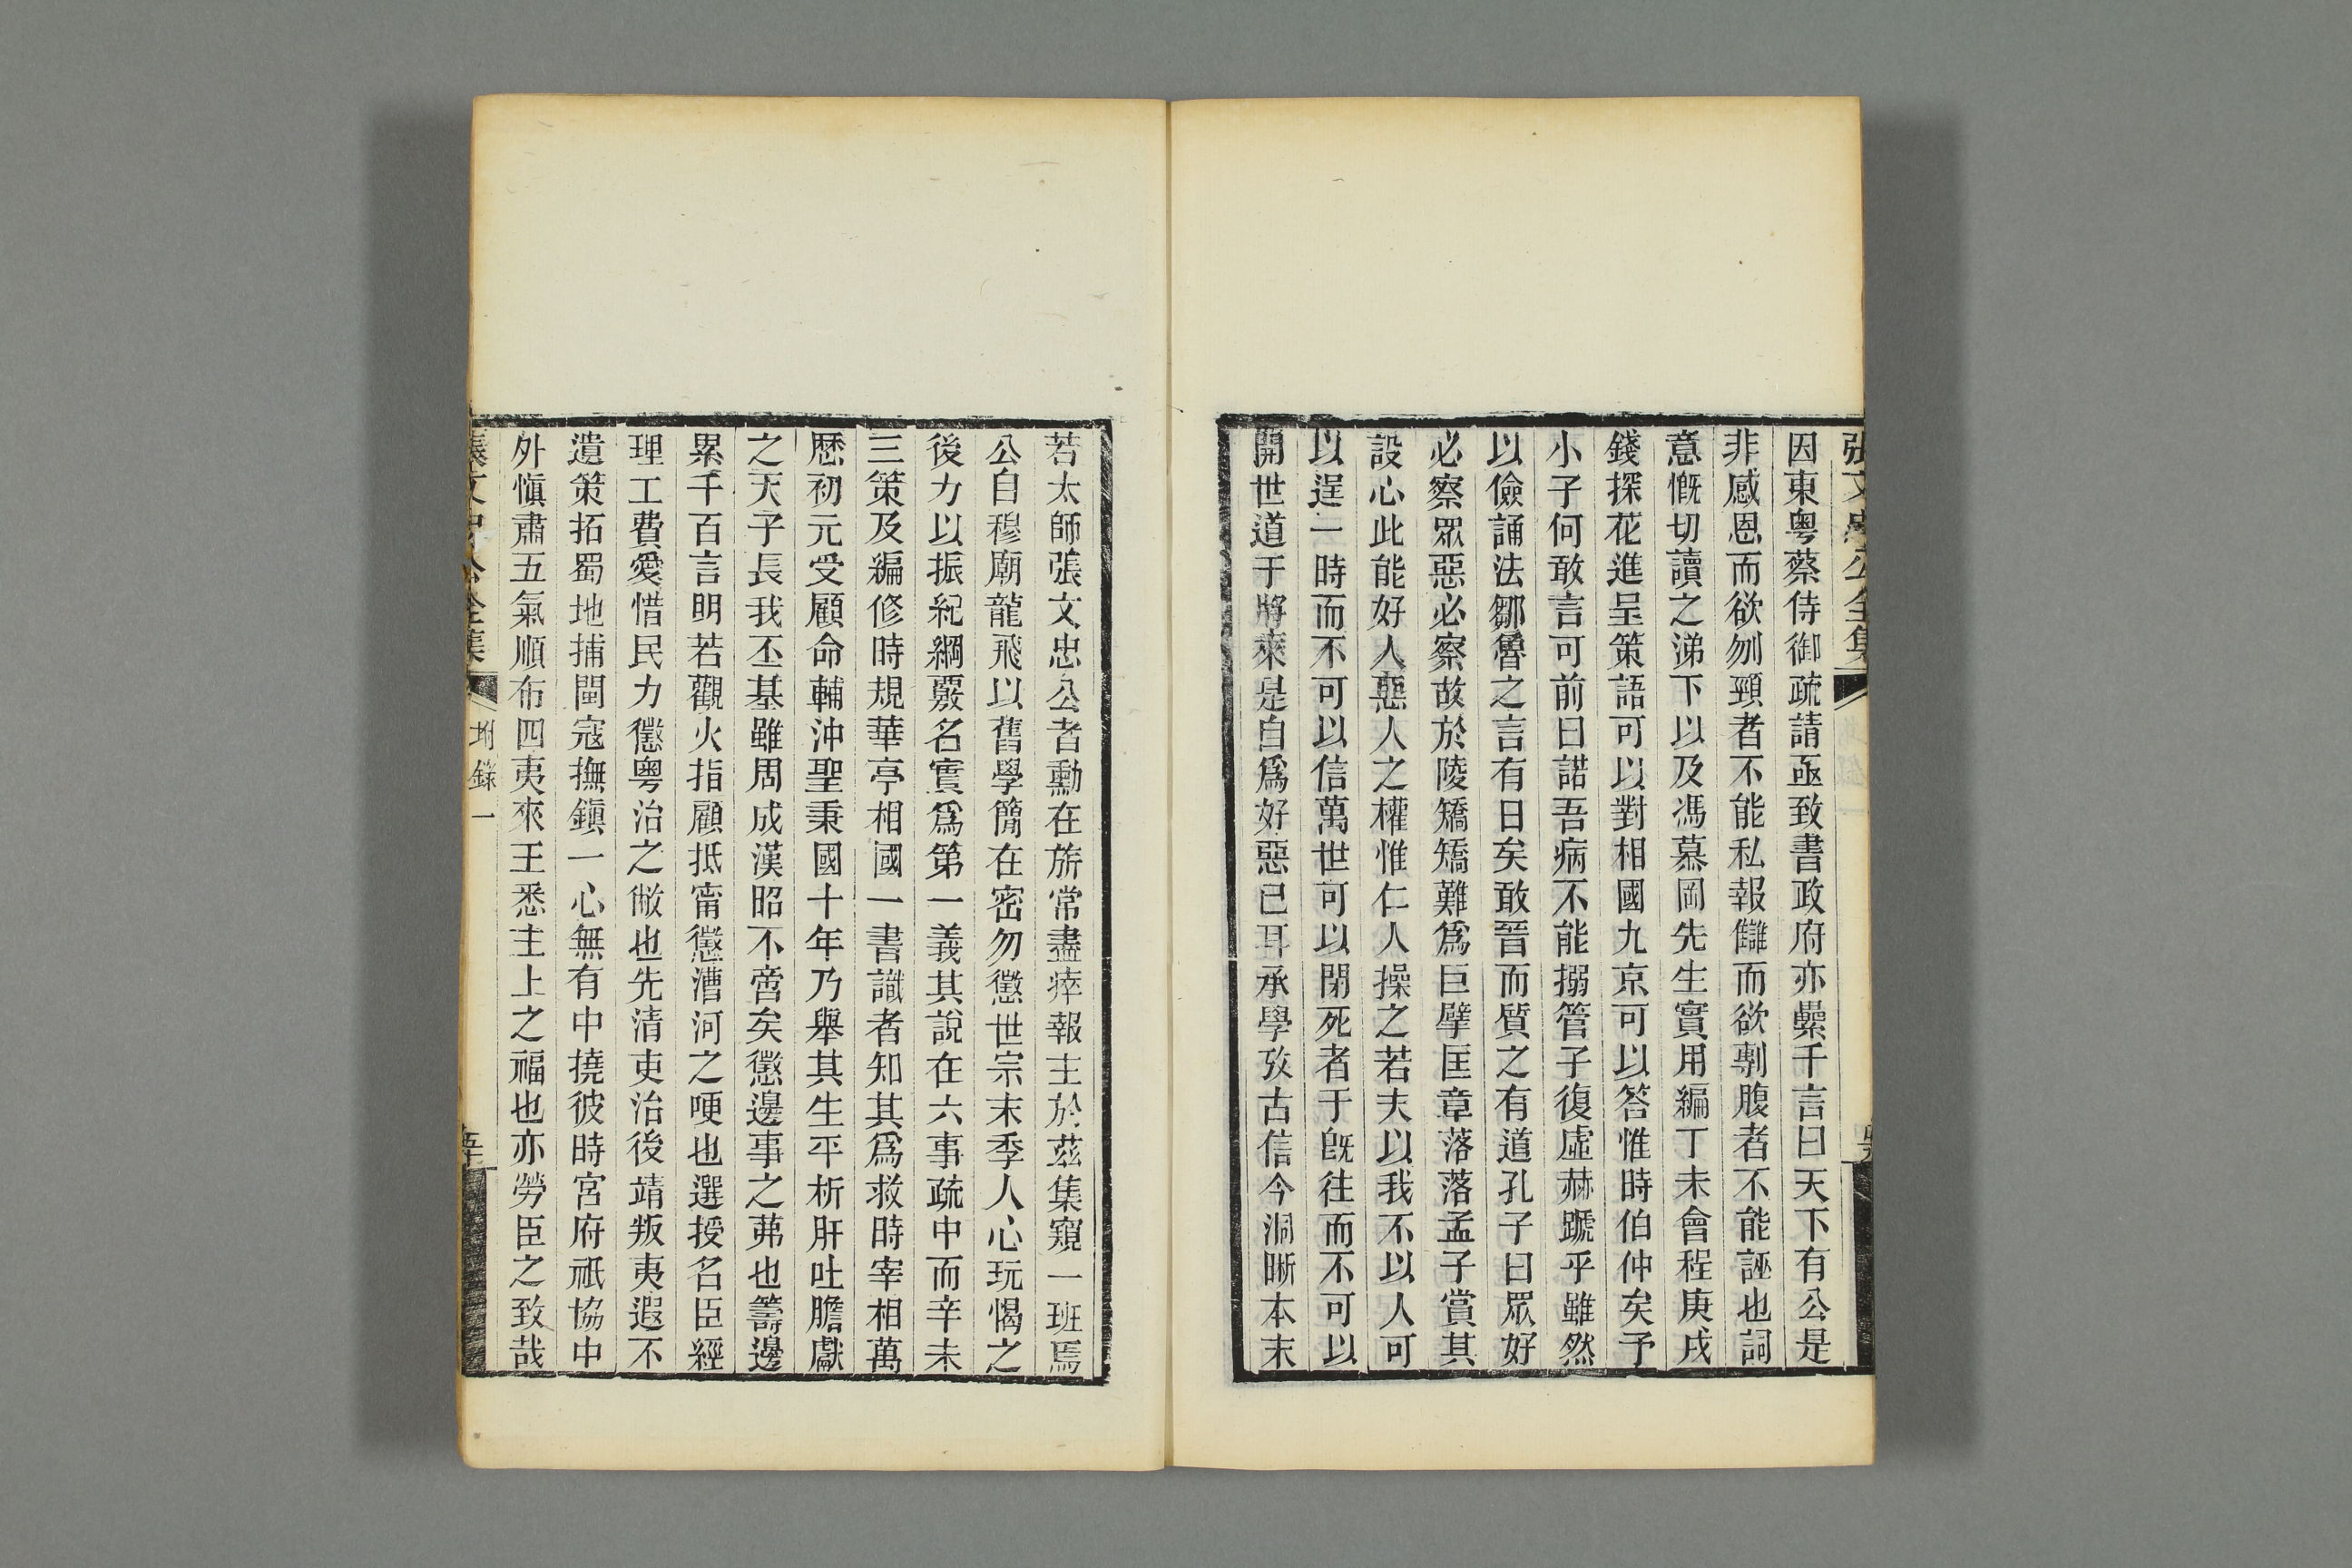 張文忠公全集
因東粵蔡侍御疏請亟致書政府亦纍千言曰天下有公是
非感恩而欲刎頸者不能私報讎而欲剚腹者不能誣也詞
意慨切讀之涕下以及馮慕岡先生實用編丁未會程庚戌
錢探花進呈策語可以對相國九京可以答惟時伯仲矣予
小子何敢言可前曰諾吾病不能搦管子復虛赫蹏乎雖然
以儉誦法鄒魯之言有日矣敢晉而質之有道孔子曰眾好
必察眾惡必察故於陵矯矯難爲巨擘匡章落落孟子賞其
設心此能好人惡人之權惟仁人操之若夫以我不以人可
以逞一時而不可以信萬世可以閉死者于旣往而不可以
開世道于將來是自爲好惡已耳承學攷古信今洞晣本末
若太師張文忠公者勳在旂常盡瘁報主於茲集窺一班焉
公自穆廟龍飛以舊學簡在密勿懲世宗末季人心玩愒之
後力以振紀綱覈名實爲第一義其說在六事疏中而辛未
三策及編修時規華亭相國一書識者知其爲救時宰相萬
歷初元受顧命輔沖聖秉國十年乃舉其生平析肝吐膽獻
之天子長我丕基雖周成漢昭不啻矣懲邊事之茀也籌邊
累千百言明若觀火指顧抵甯懲漕河之哽也選授名臣經
理工費愛惜民力懲粵治之敝也先清吏治後靖叛夷遐不
遺策拓蜀地捕閩寇撫鎭一心無有中撓彼時宮府祇協中
外愼肅五氣順布四夷來王悉主上之福也亦勞臣之致哉
張文忠公全集
附錄一